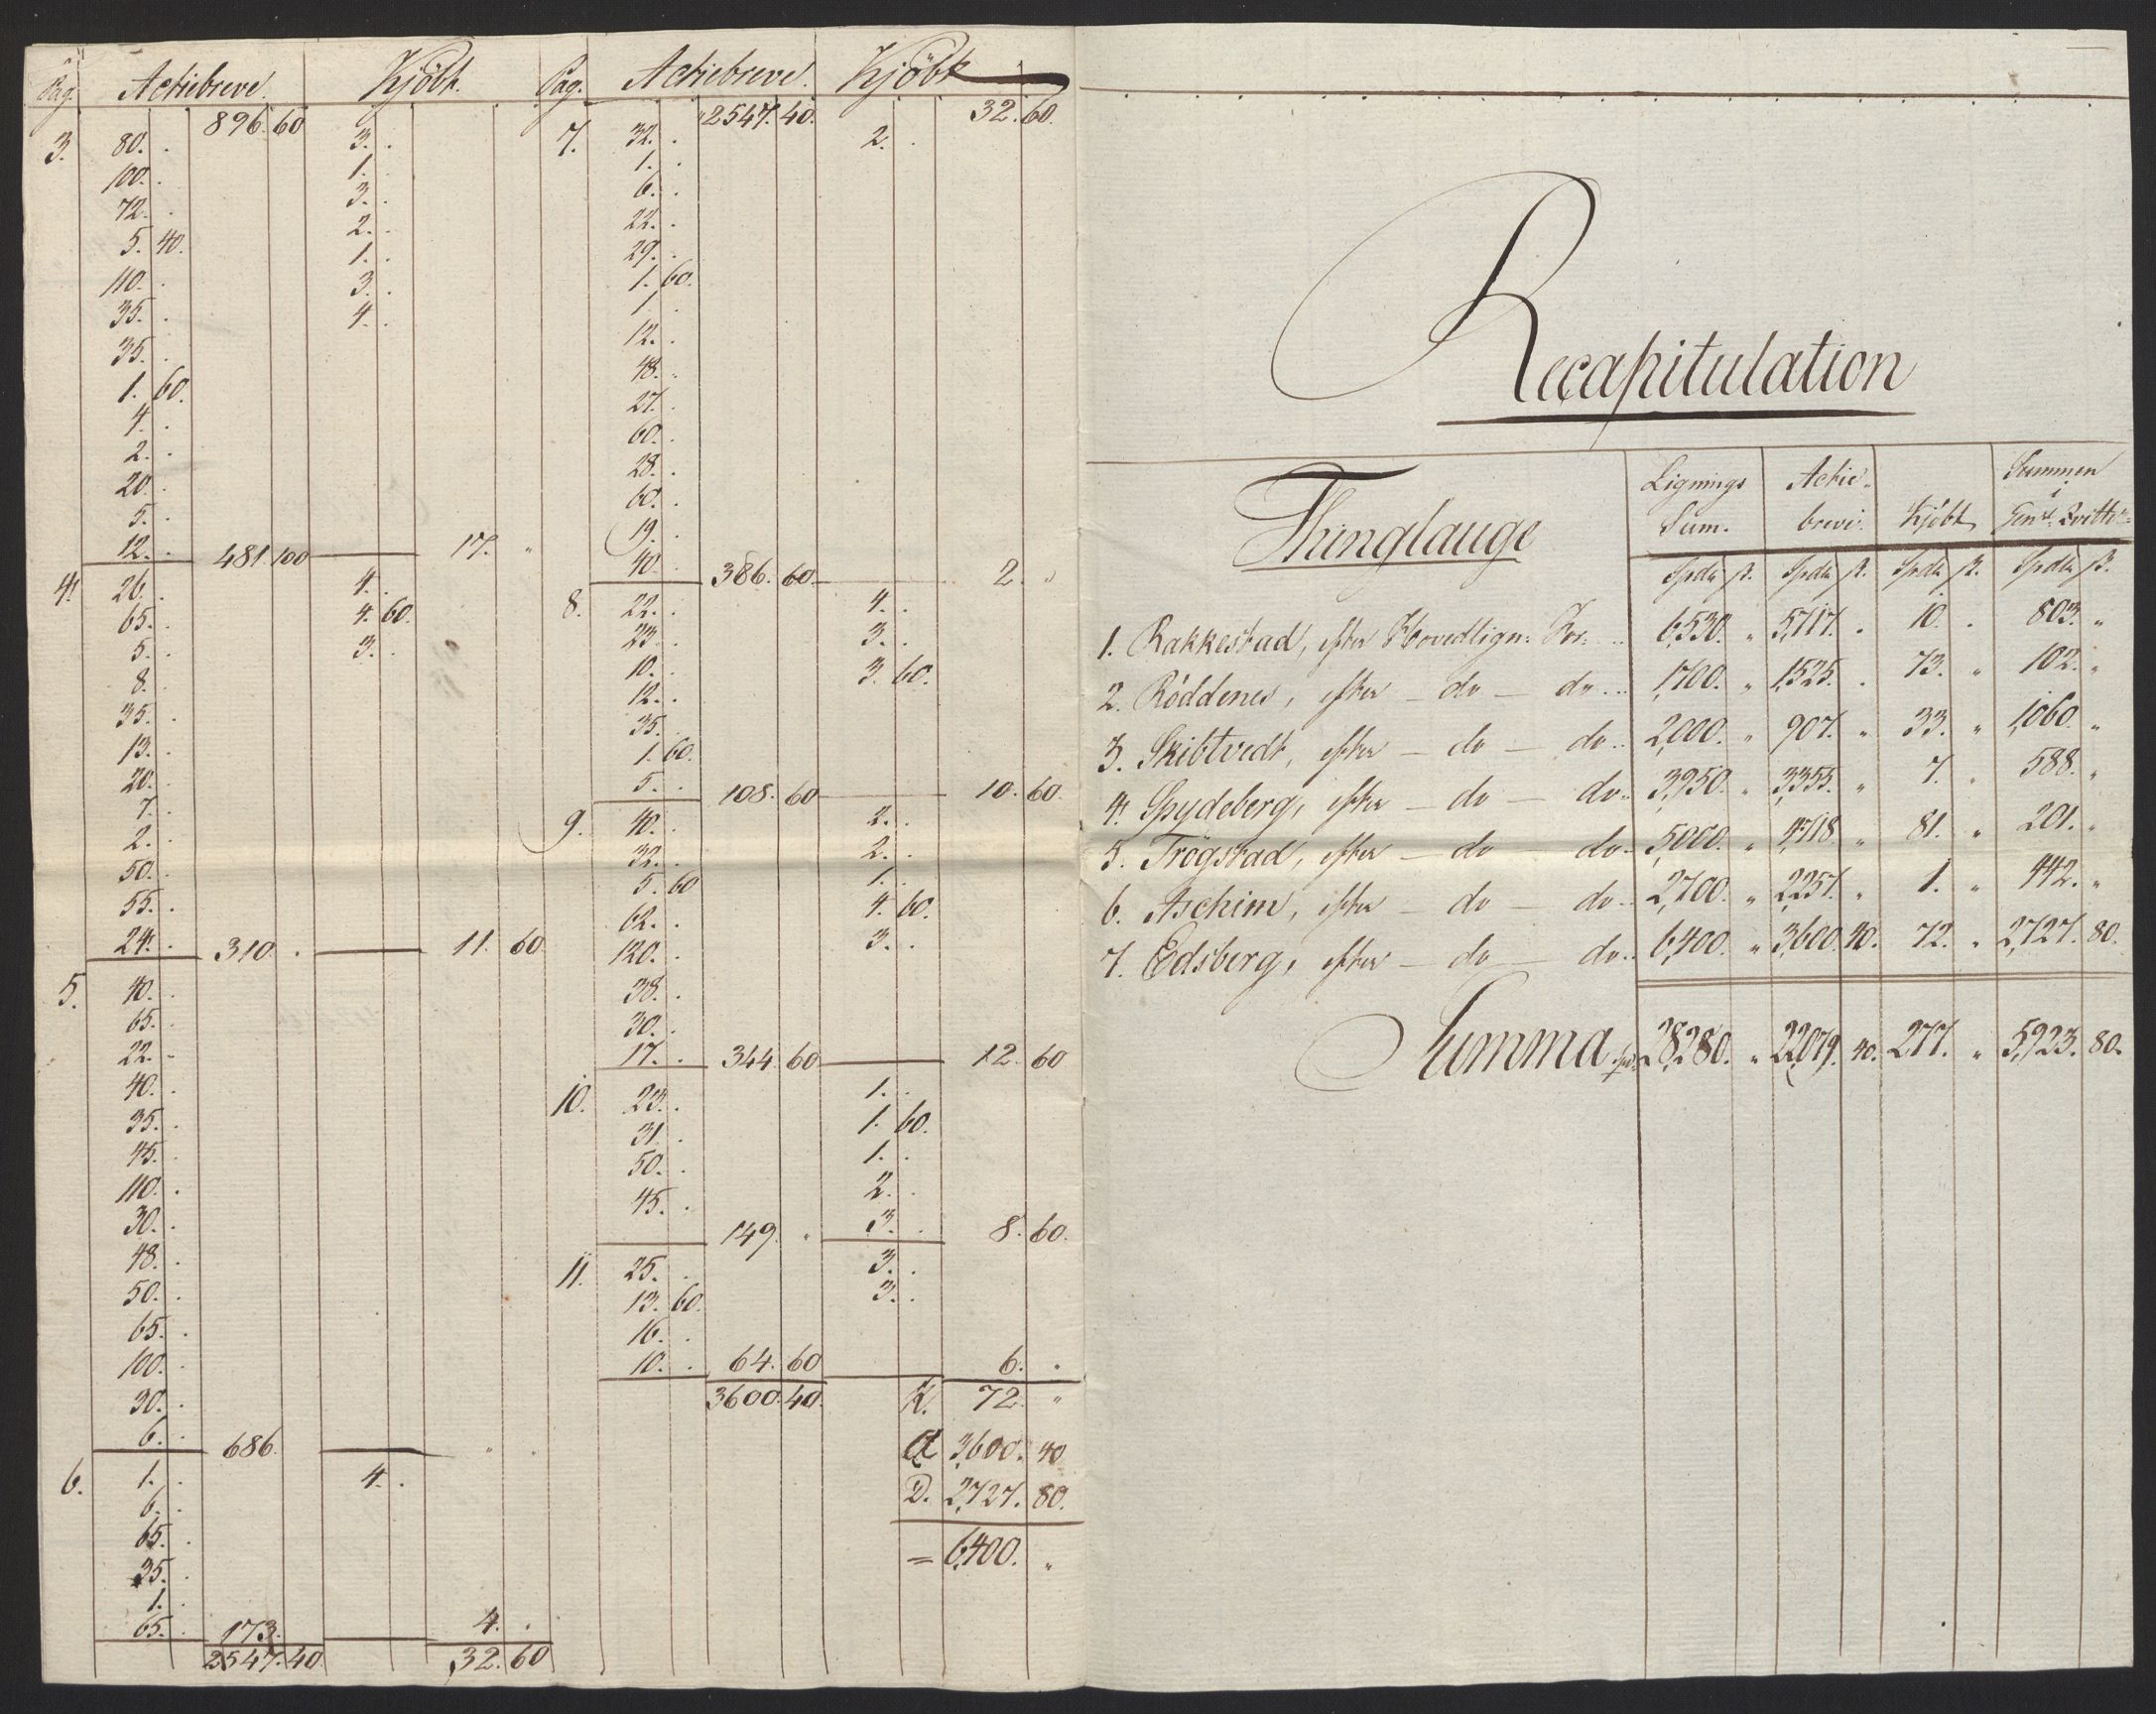 Pag. Actiebreve. Kjöbt.
896. 60
3. 80. . 3. .
100. . 1. .
72. . 3. .
5. 40. 2. .
110. . 1. .
35. . 3. .
35. . 4. .
1. 60.
4. .
2. .
20. .
5. .
12. . 481. 100 17. "
4. 26. . 4. .
65. . 4. 60.
5. . 3. .
8. .
35. .
13. .
20. .
7. .
2. .
50. .
55. .
24. . 310. . 11. 60
5. 40. .
65. .
22. .
40. .
35. .
45. .
110. .
30. .
48. .
50. .
65. .
100. .
30. .
6. . 686. " .
6. 1. . 4. .
6. .
65. .
35. .
1. .
65. . 173. 4. .
2547. 40 32. 60
Pag. Actiebreve. Kjöbt
2547. 40. 32. 60.
7. 32. . 2. .
1. .
6. .
22. .
29. .
1. 60.
1. .
12. .
48. .
27. .
60. .
28. .
60. .
19. .
40. . 386. 60. 2. "
8. 22. . 4. .
23. . 3. .
10. . 3. 60.
12. .
35. .
1. 60.
5. . 108. 60 10. 60.
9. 40. . 2. .
32. . 2. .
5. 60 1. .
62. . 4. 60.
120. . 3. .
38. .
30. .
17. . 344. 60 12. 60
10. 23. . 1. .
31. . 1. 60.
50. . 1. .
45. . 2. .
149. " 3. . 8. 60.
11. 25. . 3. .
13. 60. 3. .
16. .
10. . 64. 60 6. .
3600. 40. K. 72. "
A 3,600. 40
D. 2,727. 80.
= 6,400. "
Recapitulation
Thinglauge Lignings Sum. Actie- breve. Kjöbt Summen i Gen. Qvitte
Spdlr ß. Spdlr ß. Spdlr ß. Spdlr ß.
1. Rakkestad, efter Hovedlign: For: .. 6,530. " 5,717. . 10. . 803. "
2. Röddenes, efter — do — do ... 1,700. " 1,525. . 73. " 102. "
3. Skibtvedt, efter — do — do .. 2,000. " 907. " 33. " 1,060. "
4. Spydeberg, efter — do — do .. 3,950. " 3,355. " 7. . 588. "
5. Trögstad, efter — do — do .. 5,000. " 4,718. " 81. " 201. "
6. Aschim, efter — do — do .. 2,700. " 2,257. " 1. " 442. "
7. Edsberg, efter — do — do .. 6,400. " 3,600. 40. 72. " 2,727. 80.
Summa 28,280. " 22,079. 40. 277. " 5,923. 80.